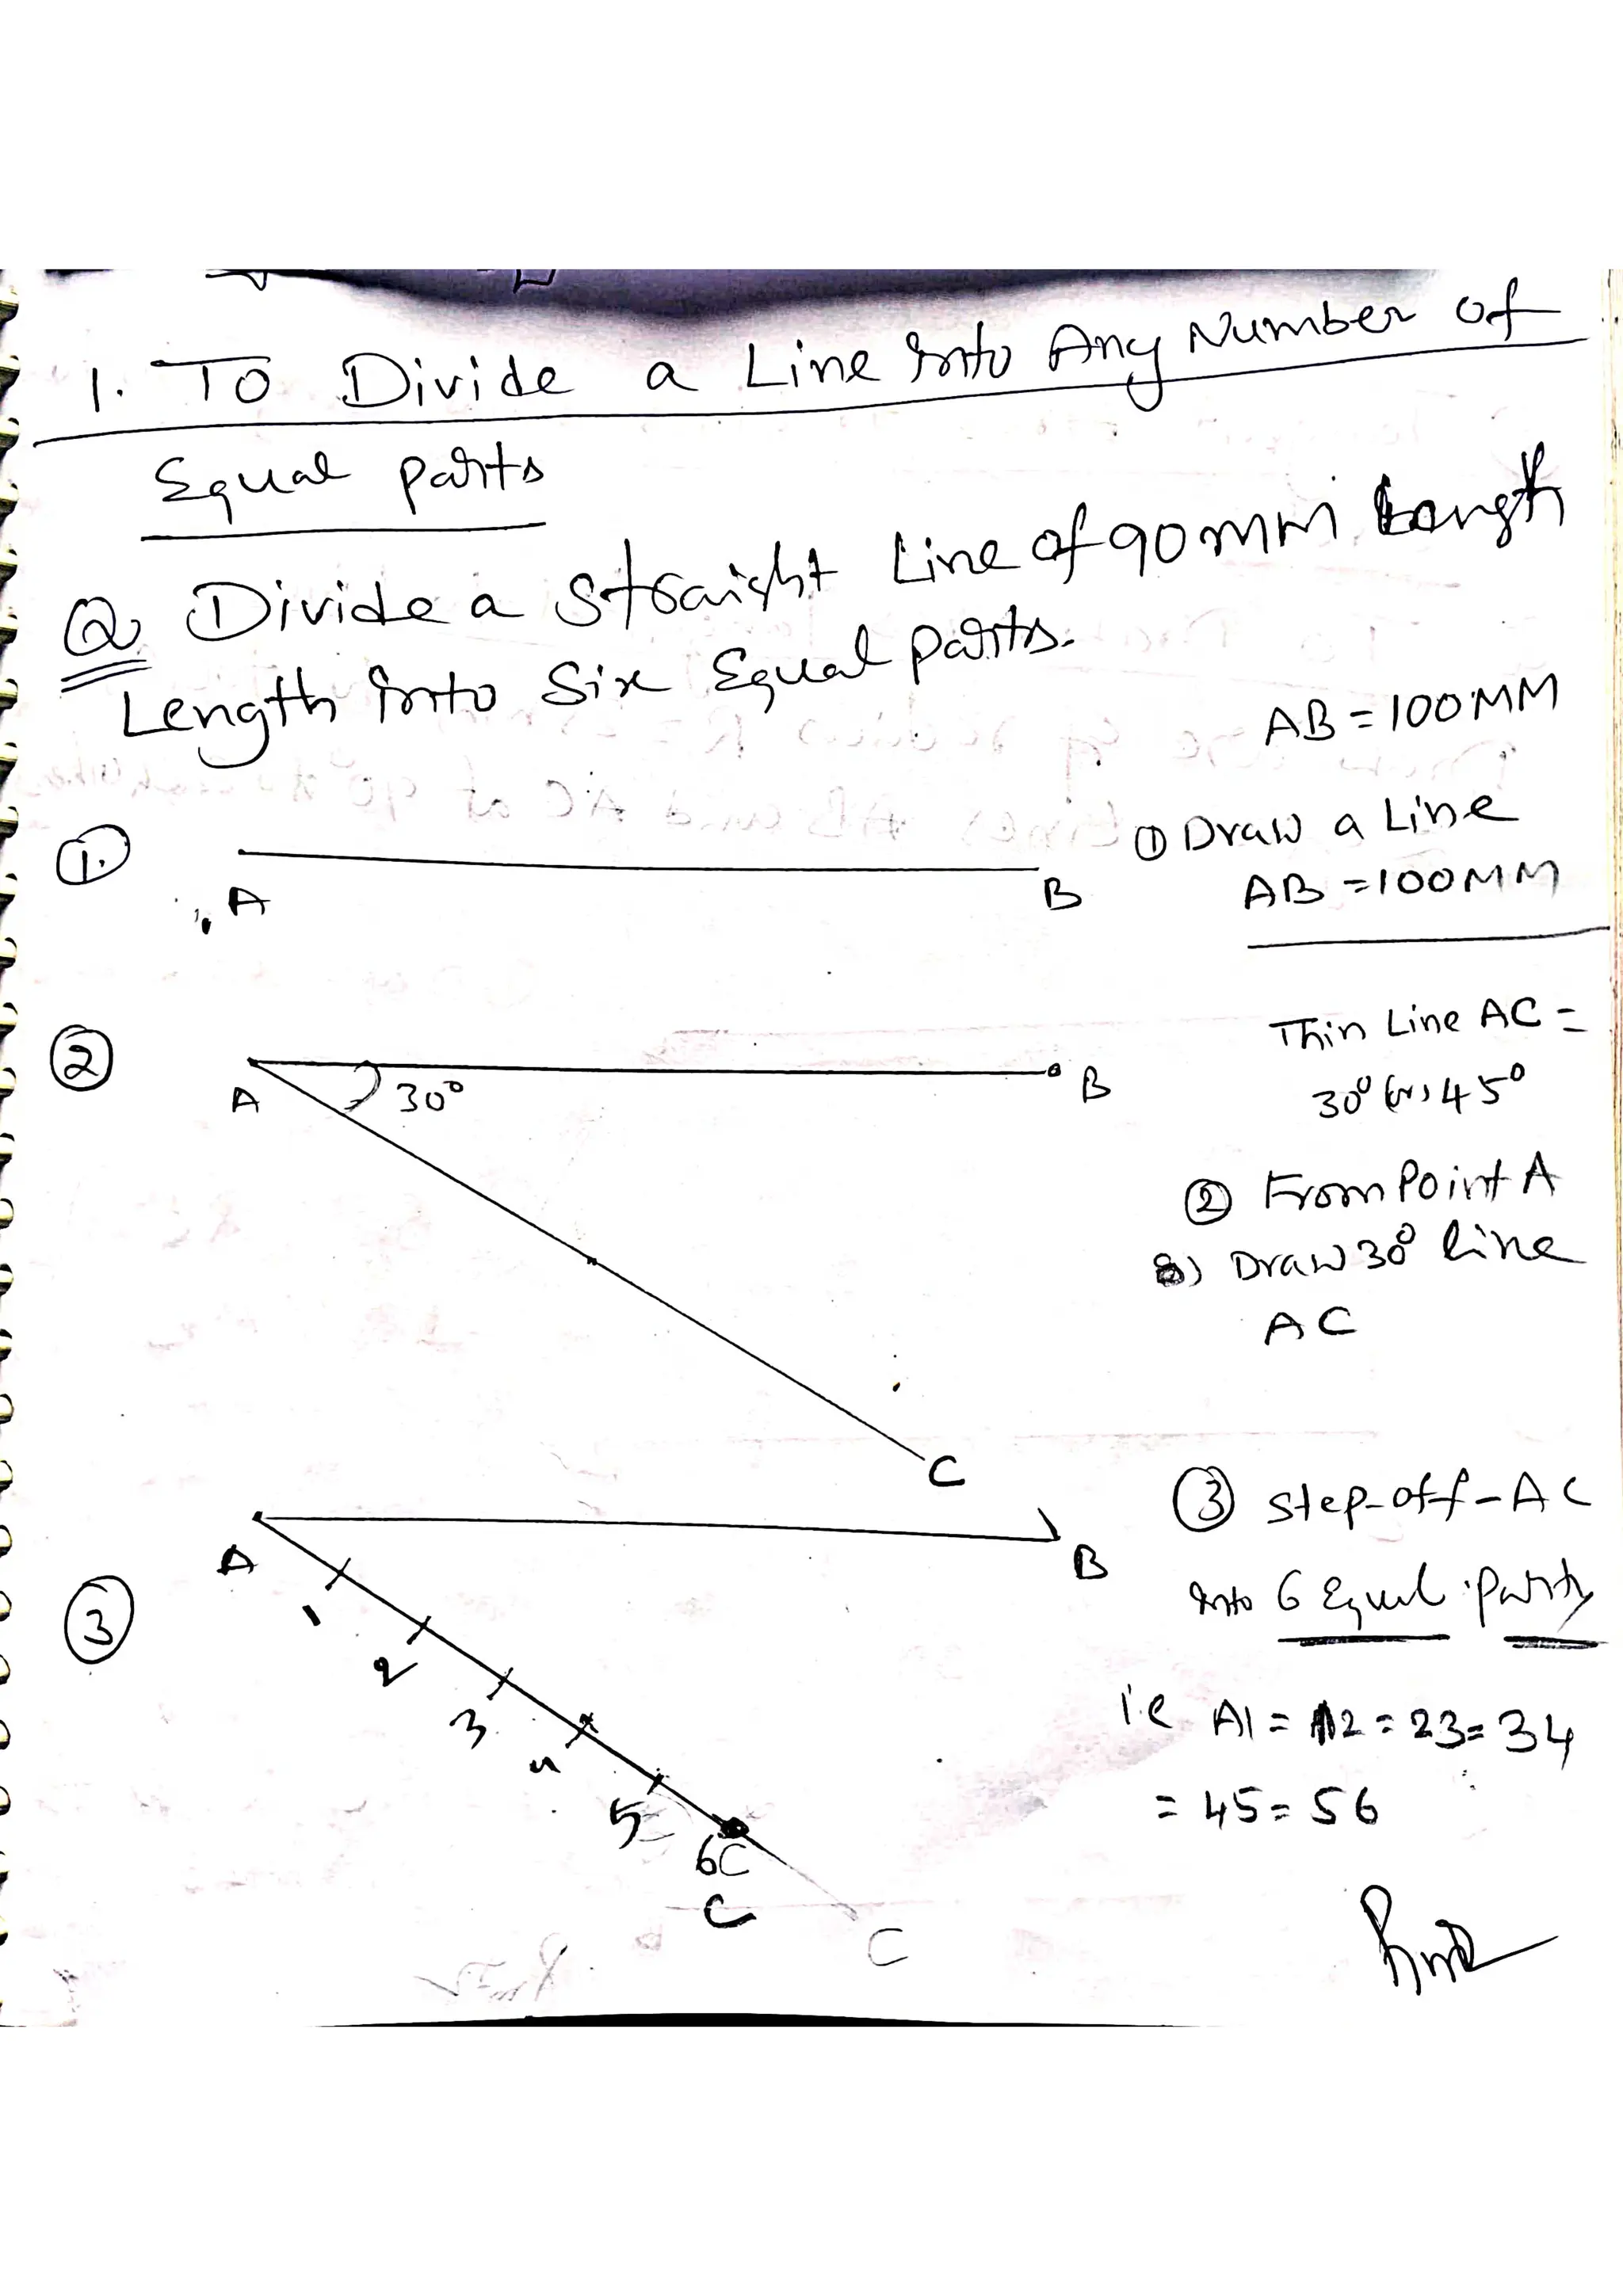 1. To Divide a Line into Any Number of
Equal parts
Q Divide a straight Line of 90 MM Length
Length into Six Equal parts.
AB = 100 MM
1.
A B
① Draw a Line
AB = 100 MM
②
A 30° B
C
Thin Line AC =
30° (or) 45°
② From Point A
Draw 30° line
AC
③
A B
1
2
3
4
5
6C
C
C
③ Step-off-AC
into 6 Equal parts
i.e A1 = 12 = 23 = 34
= 45 = 56